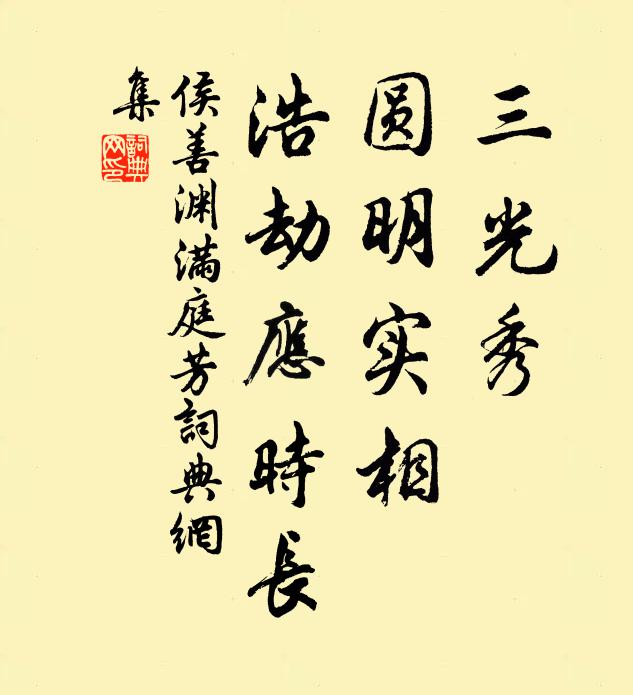 三光秀
圆明实相
浩劫應時長
侯善渊满庭芳詞典網
集
詞典
网印